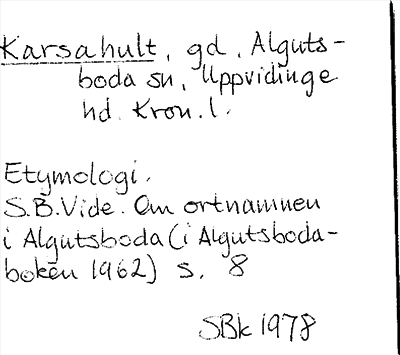 Karsahult, gd, Alguts-
boda sn, Uppvidinge
hd. Kron. l.
Etymologi.
S.B.Vide. Om ortnamnen
i Algutsboda (i Algutsboda-
boken 1962) s. 8
SBk 1978